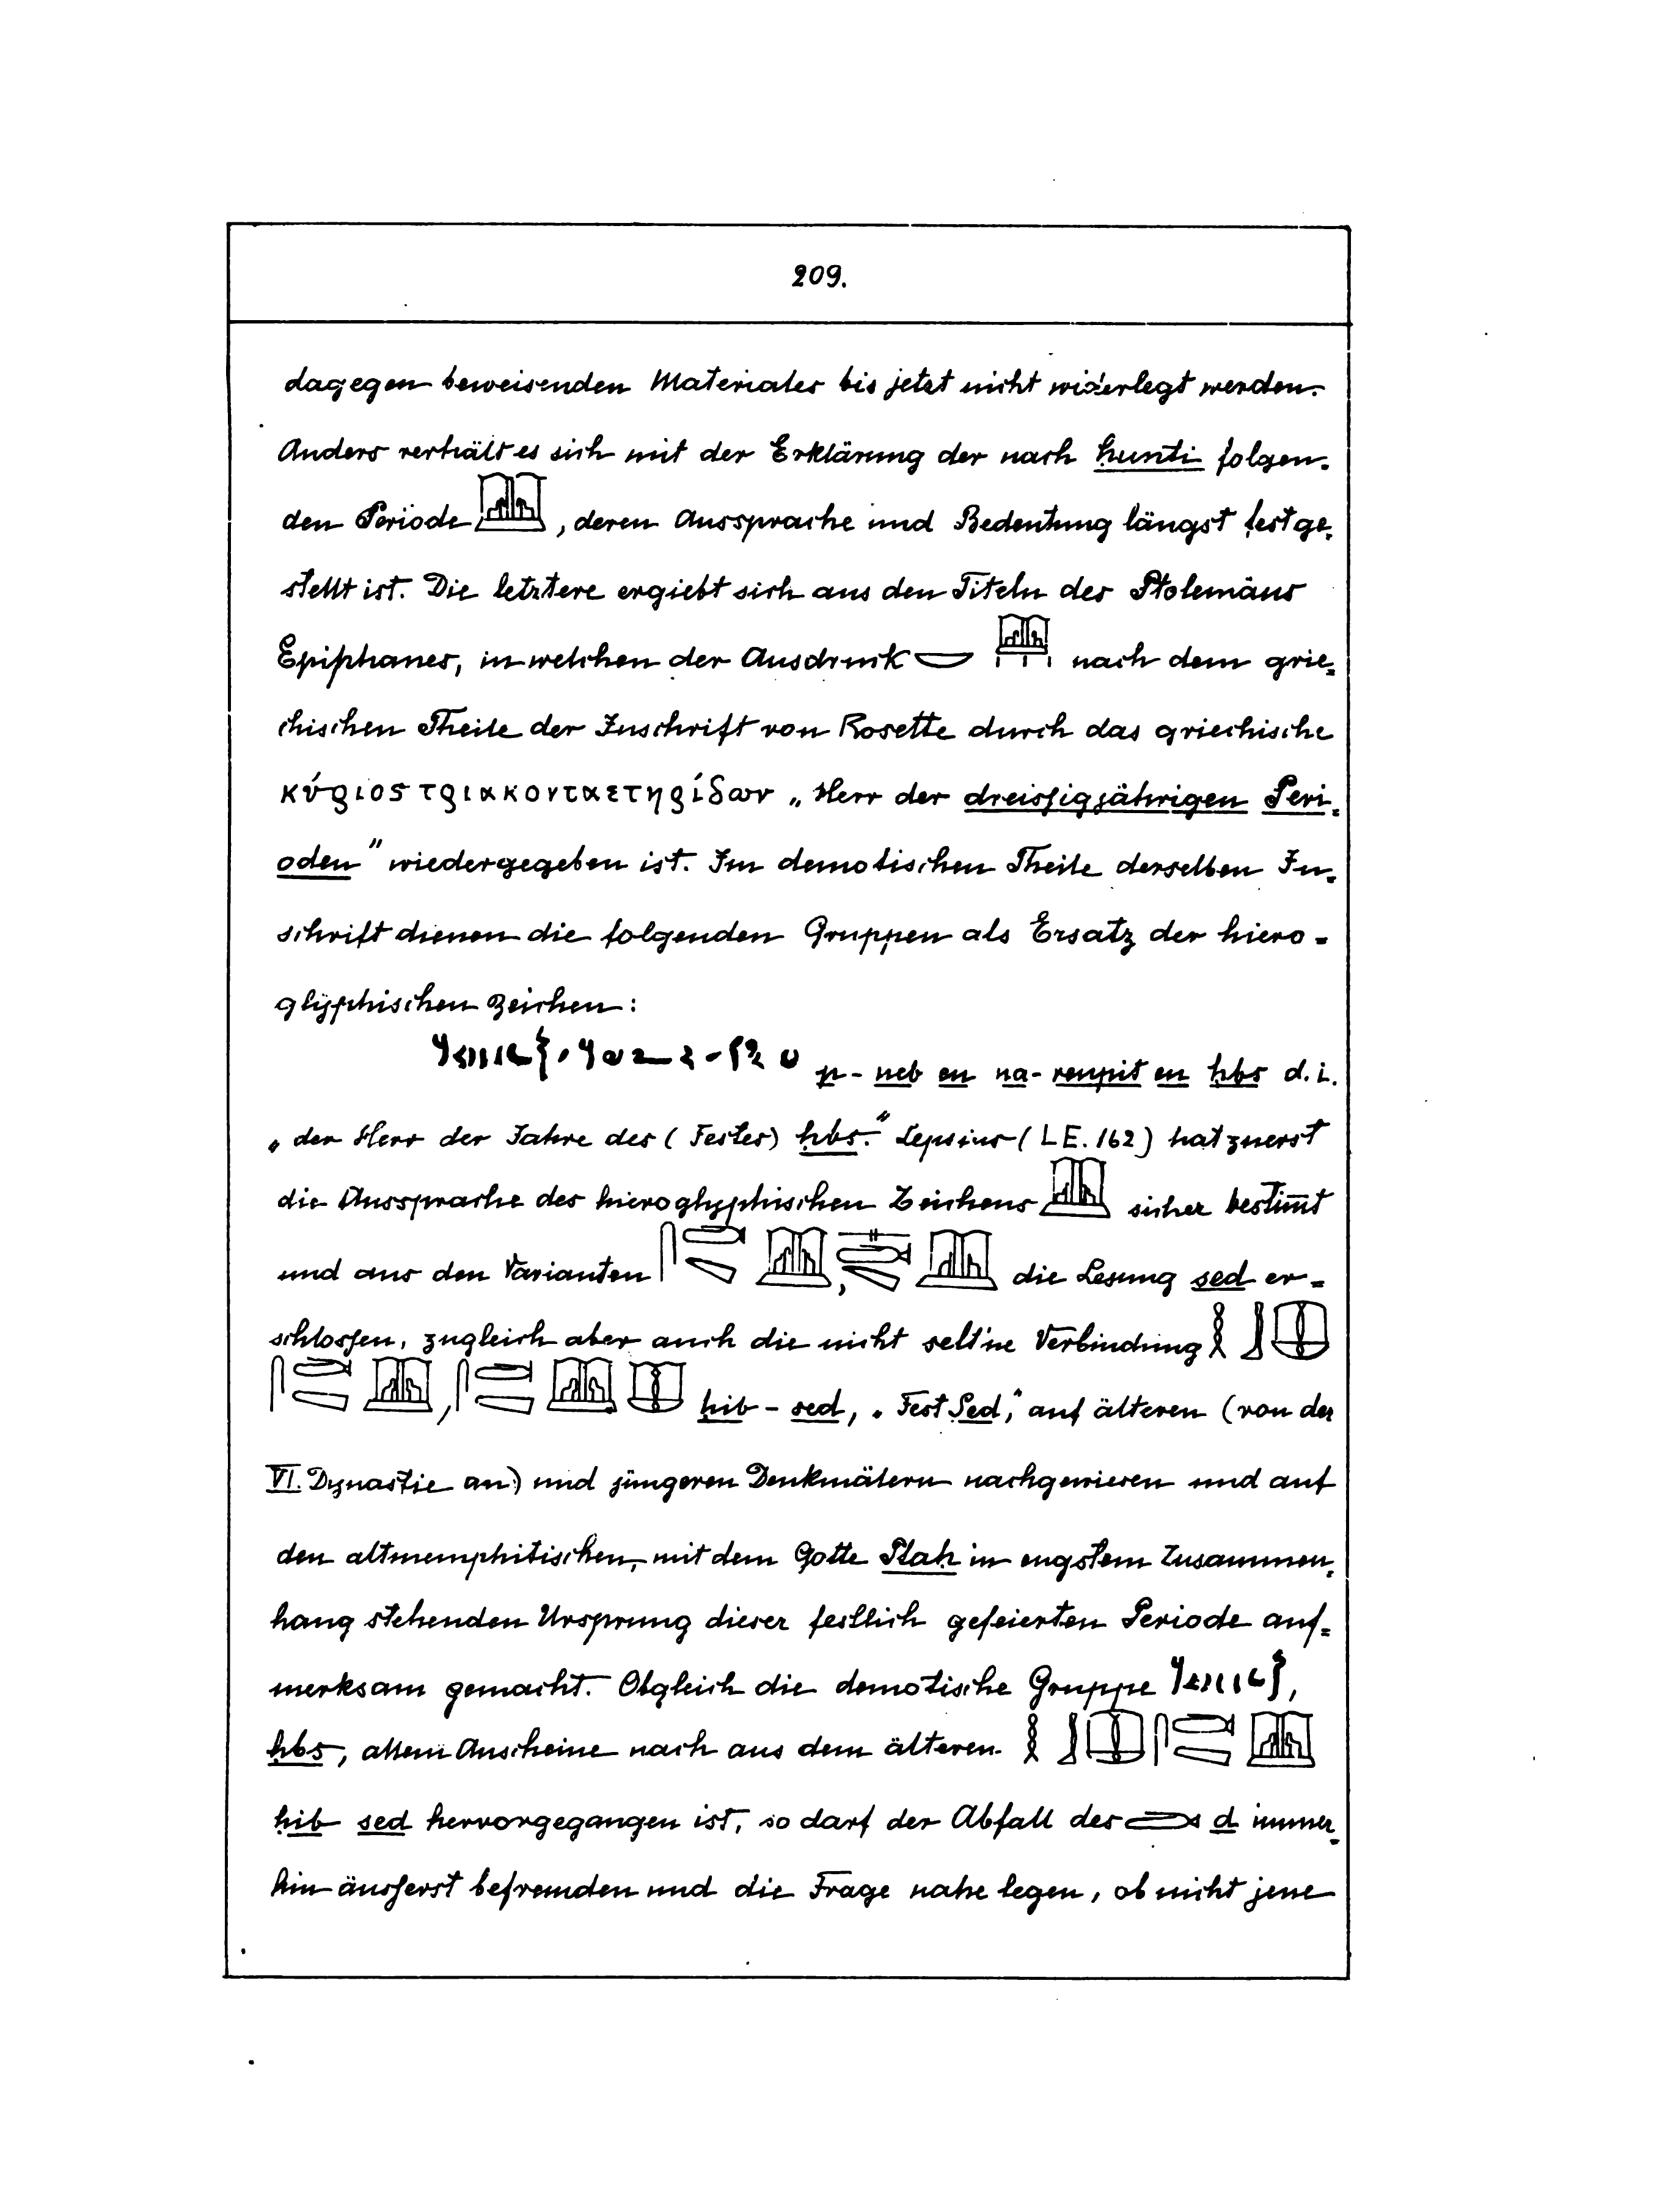 209.
dagegen beweisenden Materiales bis jetzt nicht widerlegt werden.
Anders verhält es sich mit der Erklärung der nach ḥunti folgen-
den Periode , deren Aussprache und Bedeutung längst festge-
stellt ist. Die letztere ergiebt sich aus den Titeln des Ptolemäus
Epiphanes, in welchen der Ausdruck nach dem grie-
chischen Theile der Inschrift von Rosette durch das griechische
κύριος τριακονταετηρίδων „Herr der dreissigjährigen Peri-
oden" wiedergegeben ist. Im demotischen Theile derselben In-
schrift dienen die folgenden Gruppen als Ersatz der hiero-
glyphischen Zeichen:
p-neb en na-renpit en ḥbs d.i.
„der Herr der Jahre des (Festes) ḥbs." Lepsius (LE. 162) hat zuerst
die Aussprache des hieroglyphischen Zeichens sicher bestim̄t
und aus den Varianten , die Lesung sed er-
schlossen, zugleich aber auch die nicht selt'ne Verbindung
, ḥib-sed, „Fest Sed," auf älteren (von der
VI. Dynastie an) und jüngeren Denkmälern nachgewiesen und auf
den altmemphitischen, mit dem Gotte Ptaḥ in engstem Zusammen-
hang stehenden Ursprung dieser festlich gefeierten Periode auf-
merksam gemacht. Obgleich die demotische Gruppe ,
ḥbs, allem Anscheine nach aus dem älteren
ḥib sed hervorgegangen ist, so darf der Abfall des d immer-
hin äusserst befremden und die Frage nahe legen, ob nicht jene